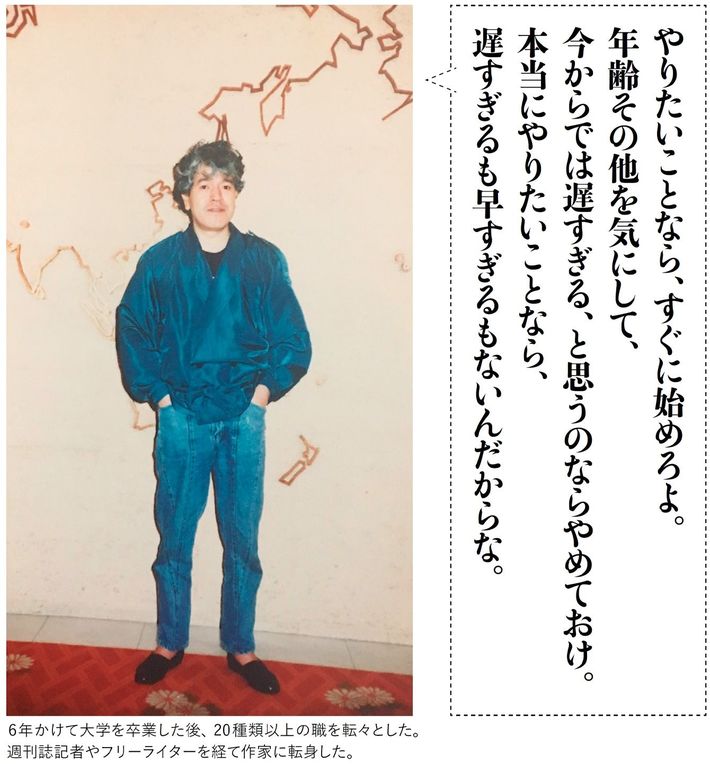 やりたいことなら、すぐに始めろよ。
年齢その他を気にして、
今からでは遅すぎる、と思うのならやめておけ。
本当にやりたいことなら、
遅すぎるも早すぎるもないんだからな。
6年かけて大学を卒業した後、20種類以上の職を転々とした。
週刊誌記者やフリーライターを経て作家に転身した。